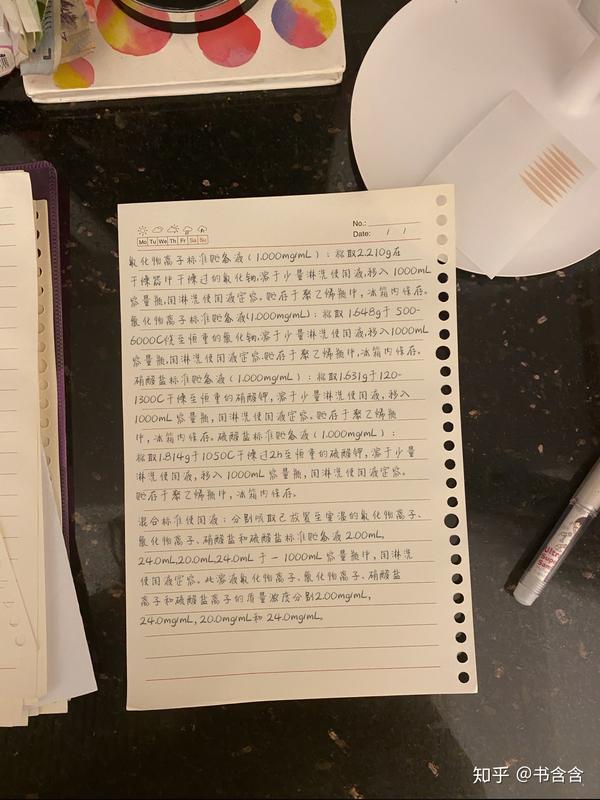 No.:
Date: / /
Mo Tu We Th Fr Sa Su
氟化物离子标准贮备液(1.000mg/mL):称取2.210g在
干燥器中干燥过的氟化钠,溶于少量淋洗使用液,移入1000mL
容量瓶,用淋洗使用液定容。贮存于聚乙烯瓶中,冰箱内保存。
氯化物离子标准贮备液(1.000mg/mL):称取1.648g于500-
6000C烘至恒重的氯化钠,溶于少量淋洗使用液,移入1000mL
容量瓶,用淋洗使用液定容。贮存于聚乙烯瓶中,冰箱内保存。
硝酸盐标准贮备液(1.000mg/mL):称取1.631g于120-
1300C干燥至恒重的硝酸钾,溶于少量淋洗使用液,移入
1000mL容量瓶,用淋洗使用液定容。贮存于聚乙烯瓶
中,冰箱内保存。硫酸盐标准贮备液(1.000mg/mL):
称取1.814g于1050C干燥过2h至恒重的硫酸钾,溶于少量
淋洗使用液,移入1000mL容量瓶,用淋洗使用液定容。
贮存于聚乙烯瓶中,冰箱内保存。
混合标准使用液:分别吸取已放置至室温的氟化物离子、
氯化物离子、硝酸盐和硫酸盐标准贮备液2.00mL,
24.0mL,20.0mL,24.0mL于一1000mL容量瓶中,用淋洗
使用液定容。此溶液氟化物离子、氯化物离子、硝酸盐
离子和硫酸盐离子的质量浓度分别2.00mg/mL,
24.0mg/mL,20.0mg/mL和24.0mg/mL。
知乎 @书含含